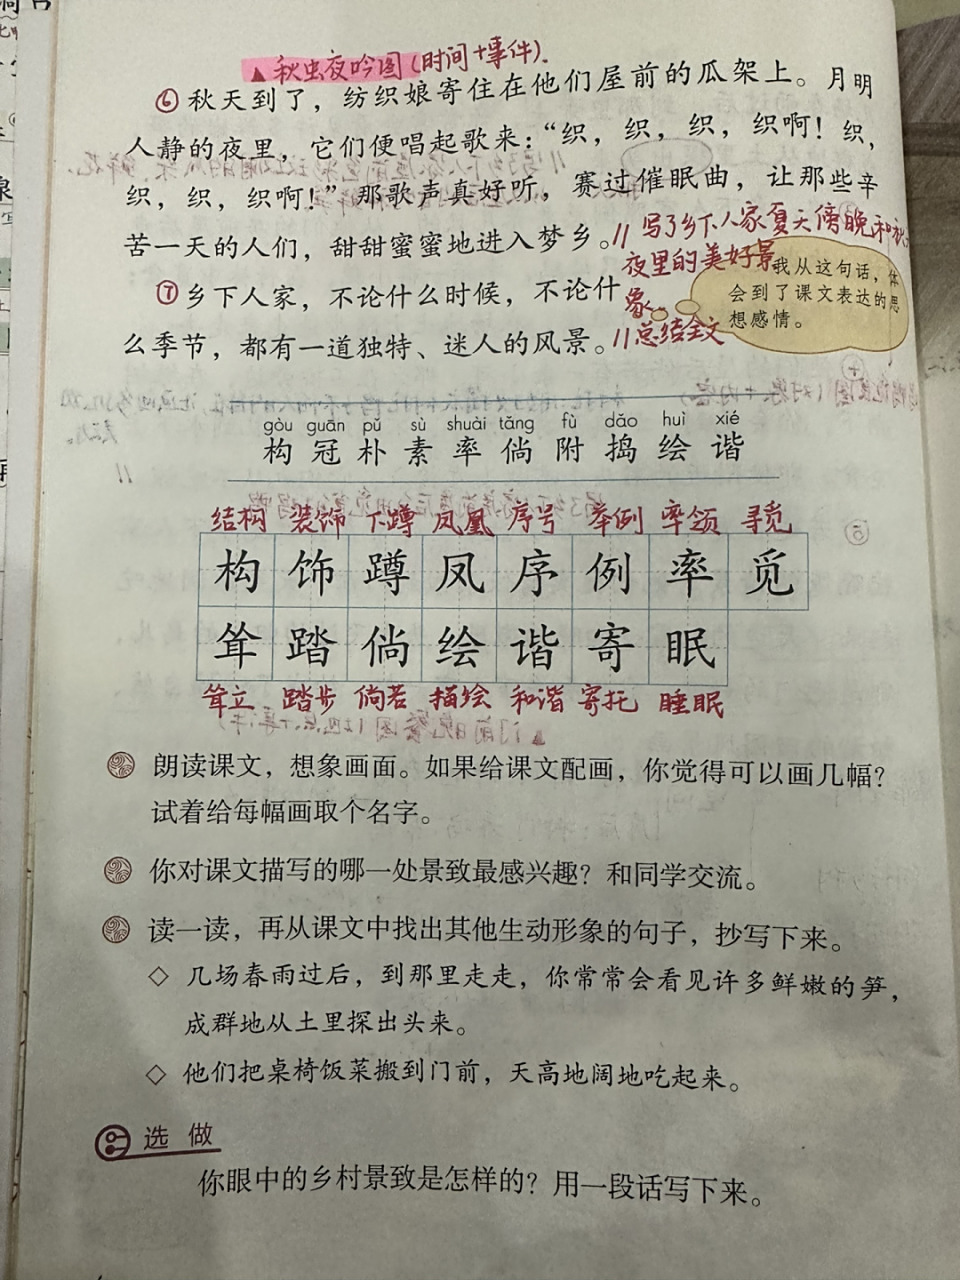 ▲秋虫夜吟图(时间+事件).
⑥秋天到了，纺织娘寄住在他们屋前的瓜架上。月明
人静的夜里，它们便唱起歌来：“织，织，织，织啊！织，
织，织，织啊！”那歌声真好听，赛过催眠曲，让那些辛
苦一天的人们，甜甜蜜蜜地进入梦乡。//写了乡下人家夏天傍晚和秋
夜里的美好景
象。
我从这句话，体
会到了课文表达的思
想感情。
⑦乡下人家，不论什么时候，不论什
么季节，都有一道独特、迷人的风景。//总结全文
gòu guān pǔ sù shuài tǎng fù dǎo huì xié
构 冠 朴 素 率 倘 附 捣 绘 谐
结构 装饰 下蹲 凤凰 序号 举例 率领 寻觅
构 饰 蹲 凤 序 例 率 觅
耸 踏 倘 绘 谐 寄 眠
耸立 踏步 倘若 描绘 和谐 寄托 睡眠
朗读课文，想象画面。如果给课文配画，你觉得可以画几幅？
试着给每幅画取个名字。
你对课文描写的哪一处景致最感兴趣？和同学交流。
读一读，再从课文中找出其他生动形象的句子，抄写下来。
◇ 几场春雨过后，到那里走走，你常常会看见许多鲜嫩的笋，
成群地从土里探出头来。
◇ 他们把桌椅饭菜搬到门前，天高地阔地吃起来。
选做
你眼中的乡村景致是怎样的？用一段话写下来。